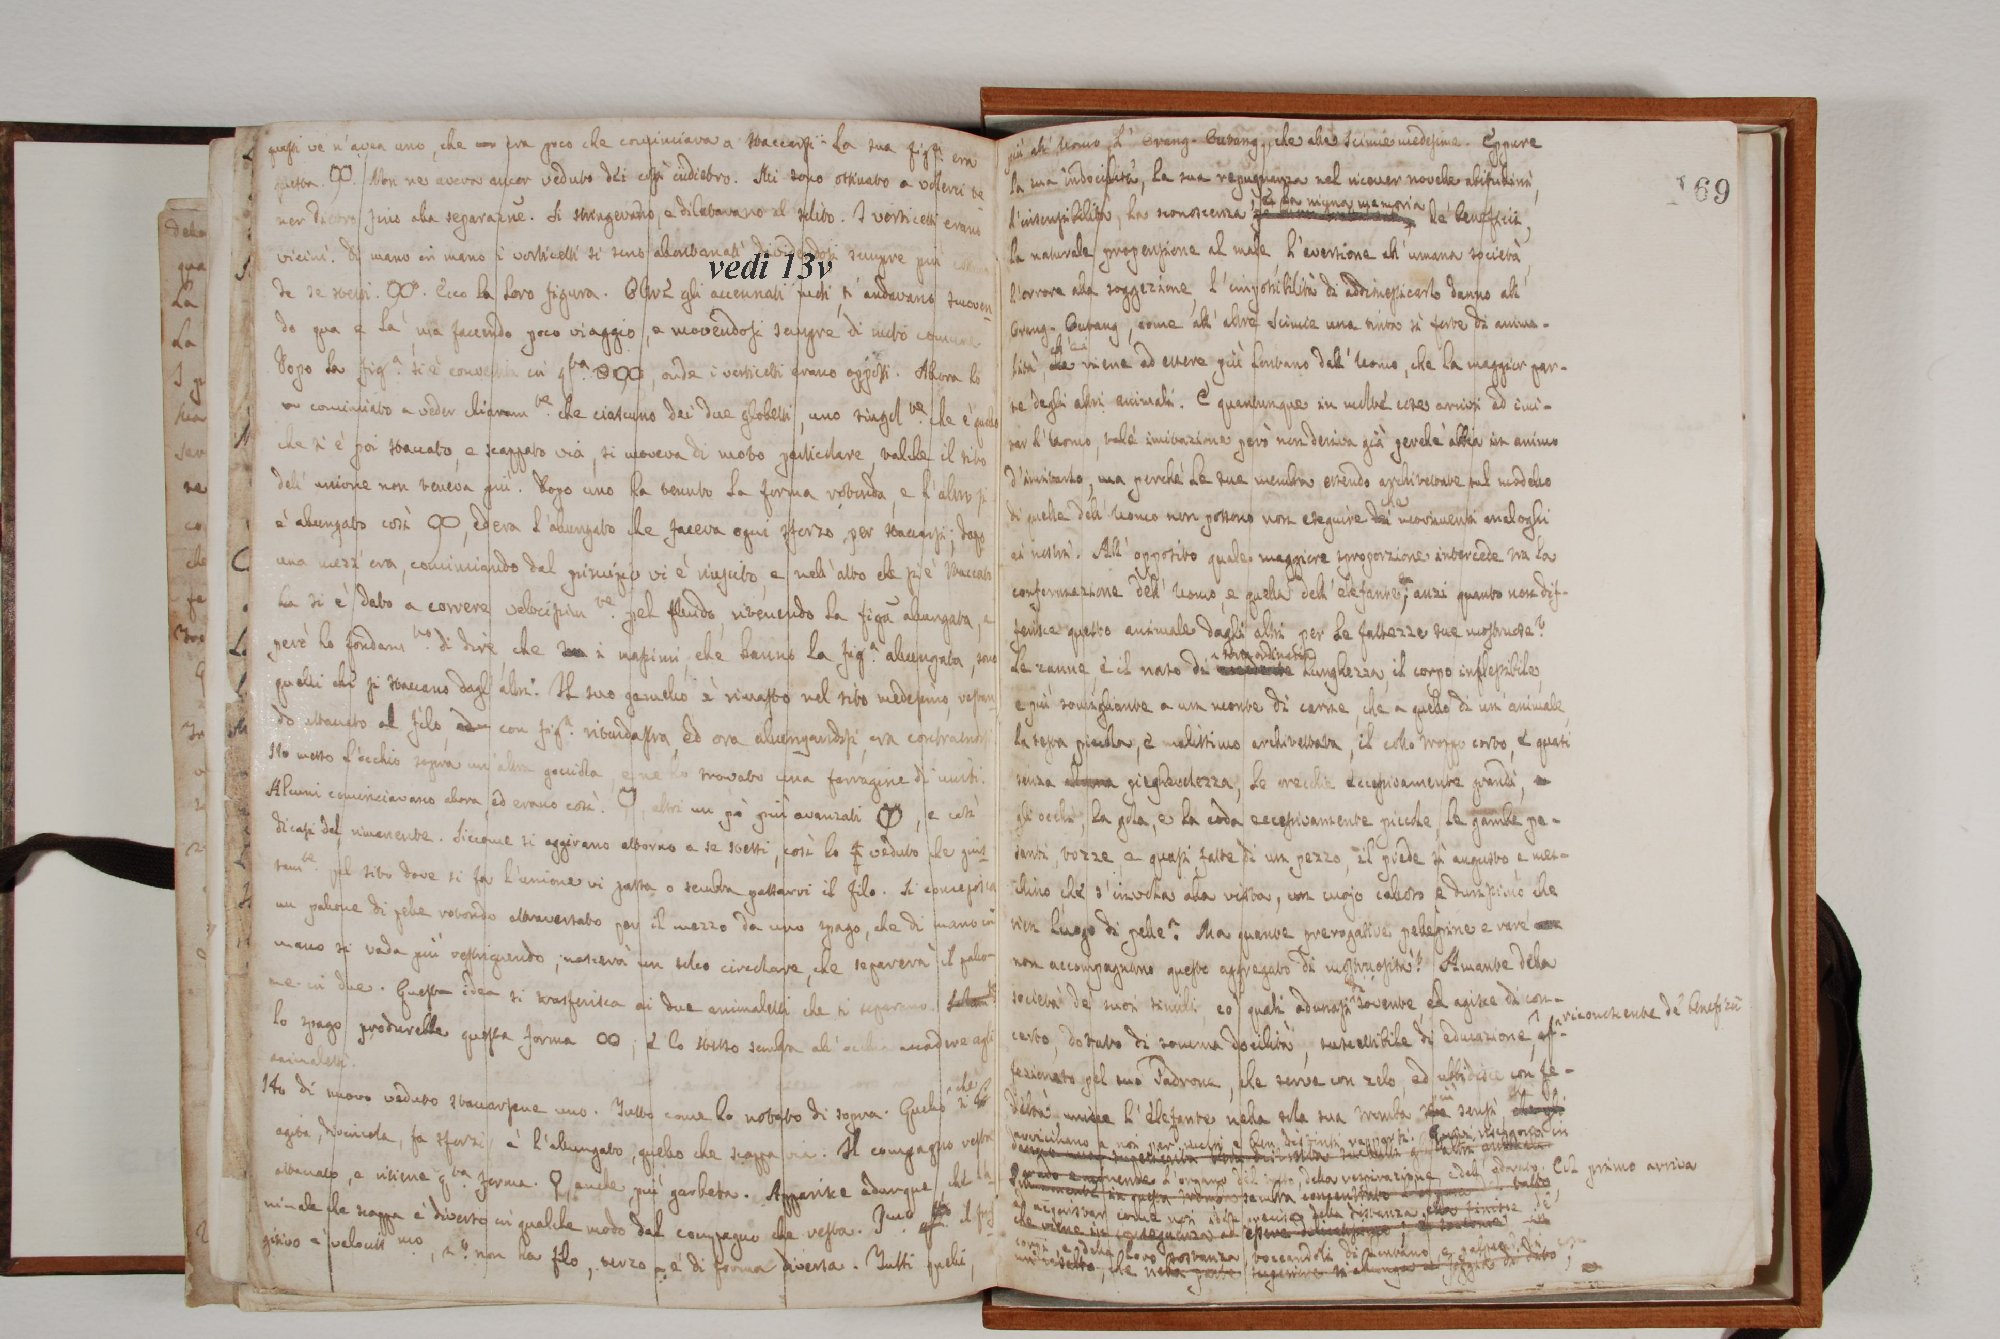 questi ve n'avea uno, che era poco che cominciava a staccarsi. La sua fig.ª era
questa. Non ne aveva ancor veduto dei così indietro. Mi sono ostinato a volerci te
ner dietro fino alla separazione. Si stringevano, e dilatavano al solito. I vorticetti erano
vicini. Di mano in mano i vorticetti si sono allontanati dividendosi sempre più
vedi 13v
da se stessi. Ecco la loro figura. Oltre gli accennati modi, s'andavano moven
do qua e là, ma facendo poco viaggio, e movendosi sempre di moto comune
Dopo la fig.ª si è convertita in q.ta, onde i vorticetti erano opposti. Allora ho
cominciato a veder chiaram.te che ciascuno dei due globetti, uno singol.te che è quello
che si è poi staccato, e scappato via, si moveva di moto particolare, talché il sito
dell'unione non teneva più. Dopo uno ha tenuto la forma rotonda, e l'altro si
è allungato così, ed era l'allungato che faceva ogni sforzo per staccarsi; dopo
una mezz'ora, cominciando dal principio vi è riuscito, e nell'atto che si è staccato
la si è dato a correre velocissim.te pel fluido, ritenendo la figura allungata, e
però ho fondam.to di dire, che i massimi che hanno la fig.ª allungata, sono
quelli che si staccano dagl'altri. Il suo gemello è rimasto nel sito medesimo, restan
do attaccato al filo, con fig.ª rotondastra, ed ora allungandosi, ora contraendosi
Ho messo l'occhio sopra un'altra gocciola, e ne ho trovato una farragine di uniti.
Alcuni cominciavano allora, ed erano così. altri un pò più avanzati, e così
dicasi del rimanente. Siccome si aggirano attorno a se stessi, così ho veduto che gius
tam.te pel sito dove si fa l'unione vi passa o sembra passarvi il filo. Si concepisca
un pallone di pelle rotondo attraversato per il mezzo da uno spago, che di mano in
mano si vada più restringendo; nascerà un solco circolare, che separerà il pallo-
ne in due. Questa idea si trasferisca ai due animaletti che si separano.
lo spago produrrebbe questa forma; e lo stesso sembra all'occhio accadere agli
animaletti.
Ho di nuovo veduto staccarsene uno. Tutto come ho notato di sopra. Quello che si
agita, divincola, fa sforzi, è l'allungato, quello che scappa via. Il compagno resta
attaccato, e ritiene q.ta forma. anche più garbata. Apparisce adunque che l'a-
nimale che scappa è diverso in qualche modo dal compagno che resta. il fug
gitivo è velociss.mo, 2.º non ha filo, terzo è di forma diversa. Tutti quelli,
169
più all'Uomo l'Orang-Outang, che alle Scimie medesime. Eppure
la sua indocilità, la sua repugnanza nel ricever novelle abitudini,
l'insensibilità, la sconoscenza, la niuna memoria de' beneficii,
la naturale propensione al male l'eversione all'umana società,
l'orrore alla soggezione, l'impossibilità di addimesticarlo danno all'
Orang-Outang, come all'altre Scimie una tinta sì forte di anima-
lità, che viene ad essere più lontano dall'Uomo, che la maggior par-
te degli altri animali. E quantunque in molte cose arrivi ad imi-
tar l'Uomo, tale imitazione però non deriva già perché abbia in animo
d'imitarlo, ma perché le sue membra essendo architettate sul modello
di quelle dell'Uomo non possono non eseguire dei movimenti analoghi
ai nostri. All'opposito quale maggiore sproporzione intercede tra la
conformazione dell'Uomo, e quella dell'elefante; anzi quanto non dif-
ferisce questo animale dagli altri per le fattezze sue mostruose?
Le zanne e il naso di straordinaria lunghezza, il corpo inflessibile
e più somigliante a un monte di carne, che a quello di un'animale,
la testa piccola, e malissimo architettata, il collo troppo corto, e quasi
senza pieghevolezza, le orecchie eccessivamente grandi,
gli occhi, la gola, e la coda eccessivamente piccole, le gambe pe-
santi, tozze e quasi fatte di un pezzo, il piede sì angusto e mes-
chino che s'invola alla vista, un cuojo calloso e durissimo che
tien luogo di pelle? Ma quante prerogative pellegrine e rare
non accompagnano questo aggregato di mostruosità? Amante della
società de' suoi simili, co' quali adunasi sovente, ed agisce di con-
certo, dotato di somma docilità, suscettibile di educazione, riconoscente de' beneficii
af-
fezionato pel suo Padrone, che serve con zelo, ed ubbidisce con fe-
deltà unisce l'elefante nella sola sua tromba sensi, che gli
avvicinano a noi per molti e ben distinti rapporti.
l'organo del tatto, della respirazione e dell'odorato. Col primo arriva
ad acquistar come noi idee precise della distanza,
della loro sostanza, toccandola